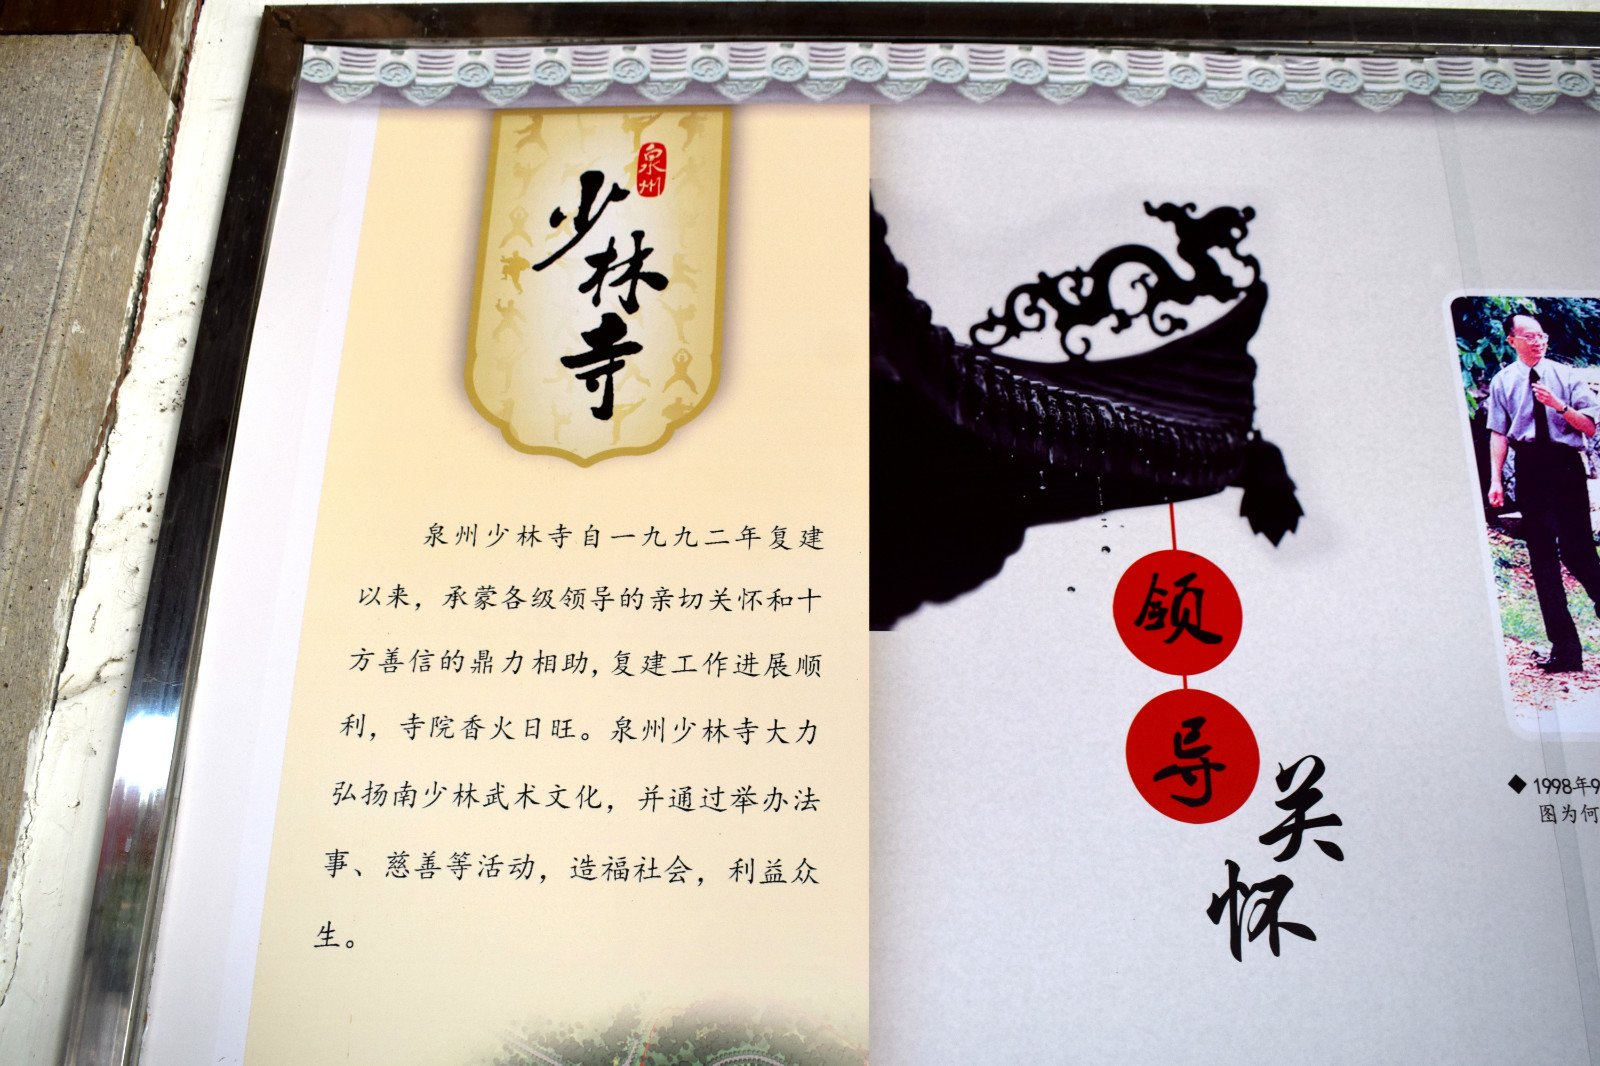 泉州
少林寺
泉州少林寺自一九九二年复建
以来，承蒙各级领导的亲切关怀和十
方善信的鼎力相助，复建工作进展顺
利，寺院香火日旺。泉州少林寺大力
弘扬南少林武术文化，并通过举办法
事、慈善等活动，造福社会，利益众
生。
领
导
关
怀
◆ 1998年9
图为何